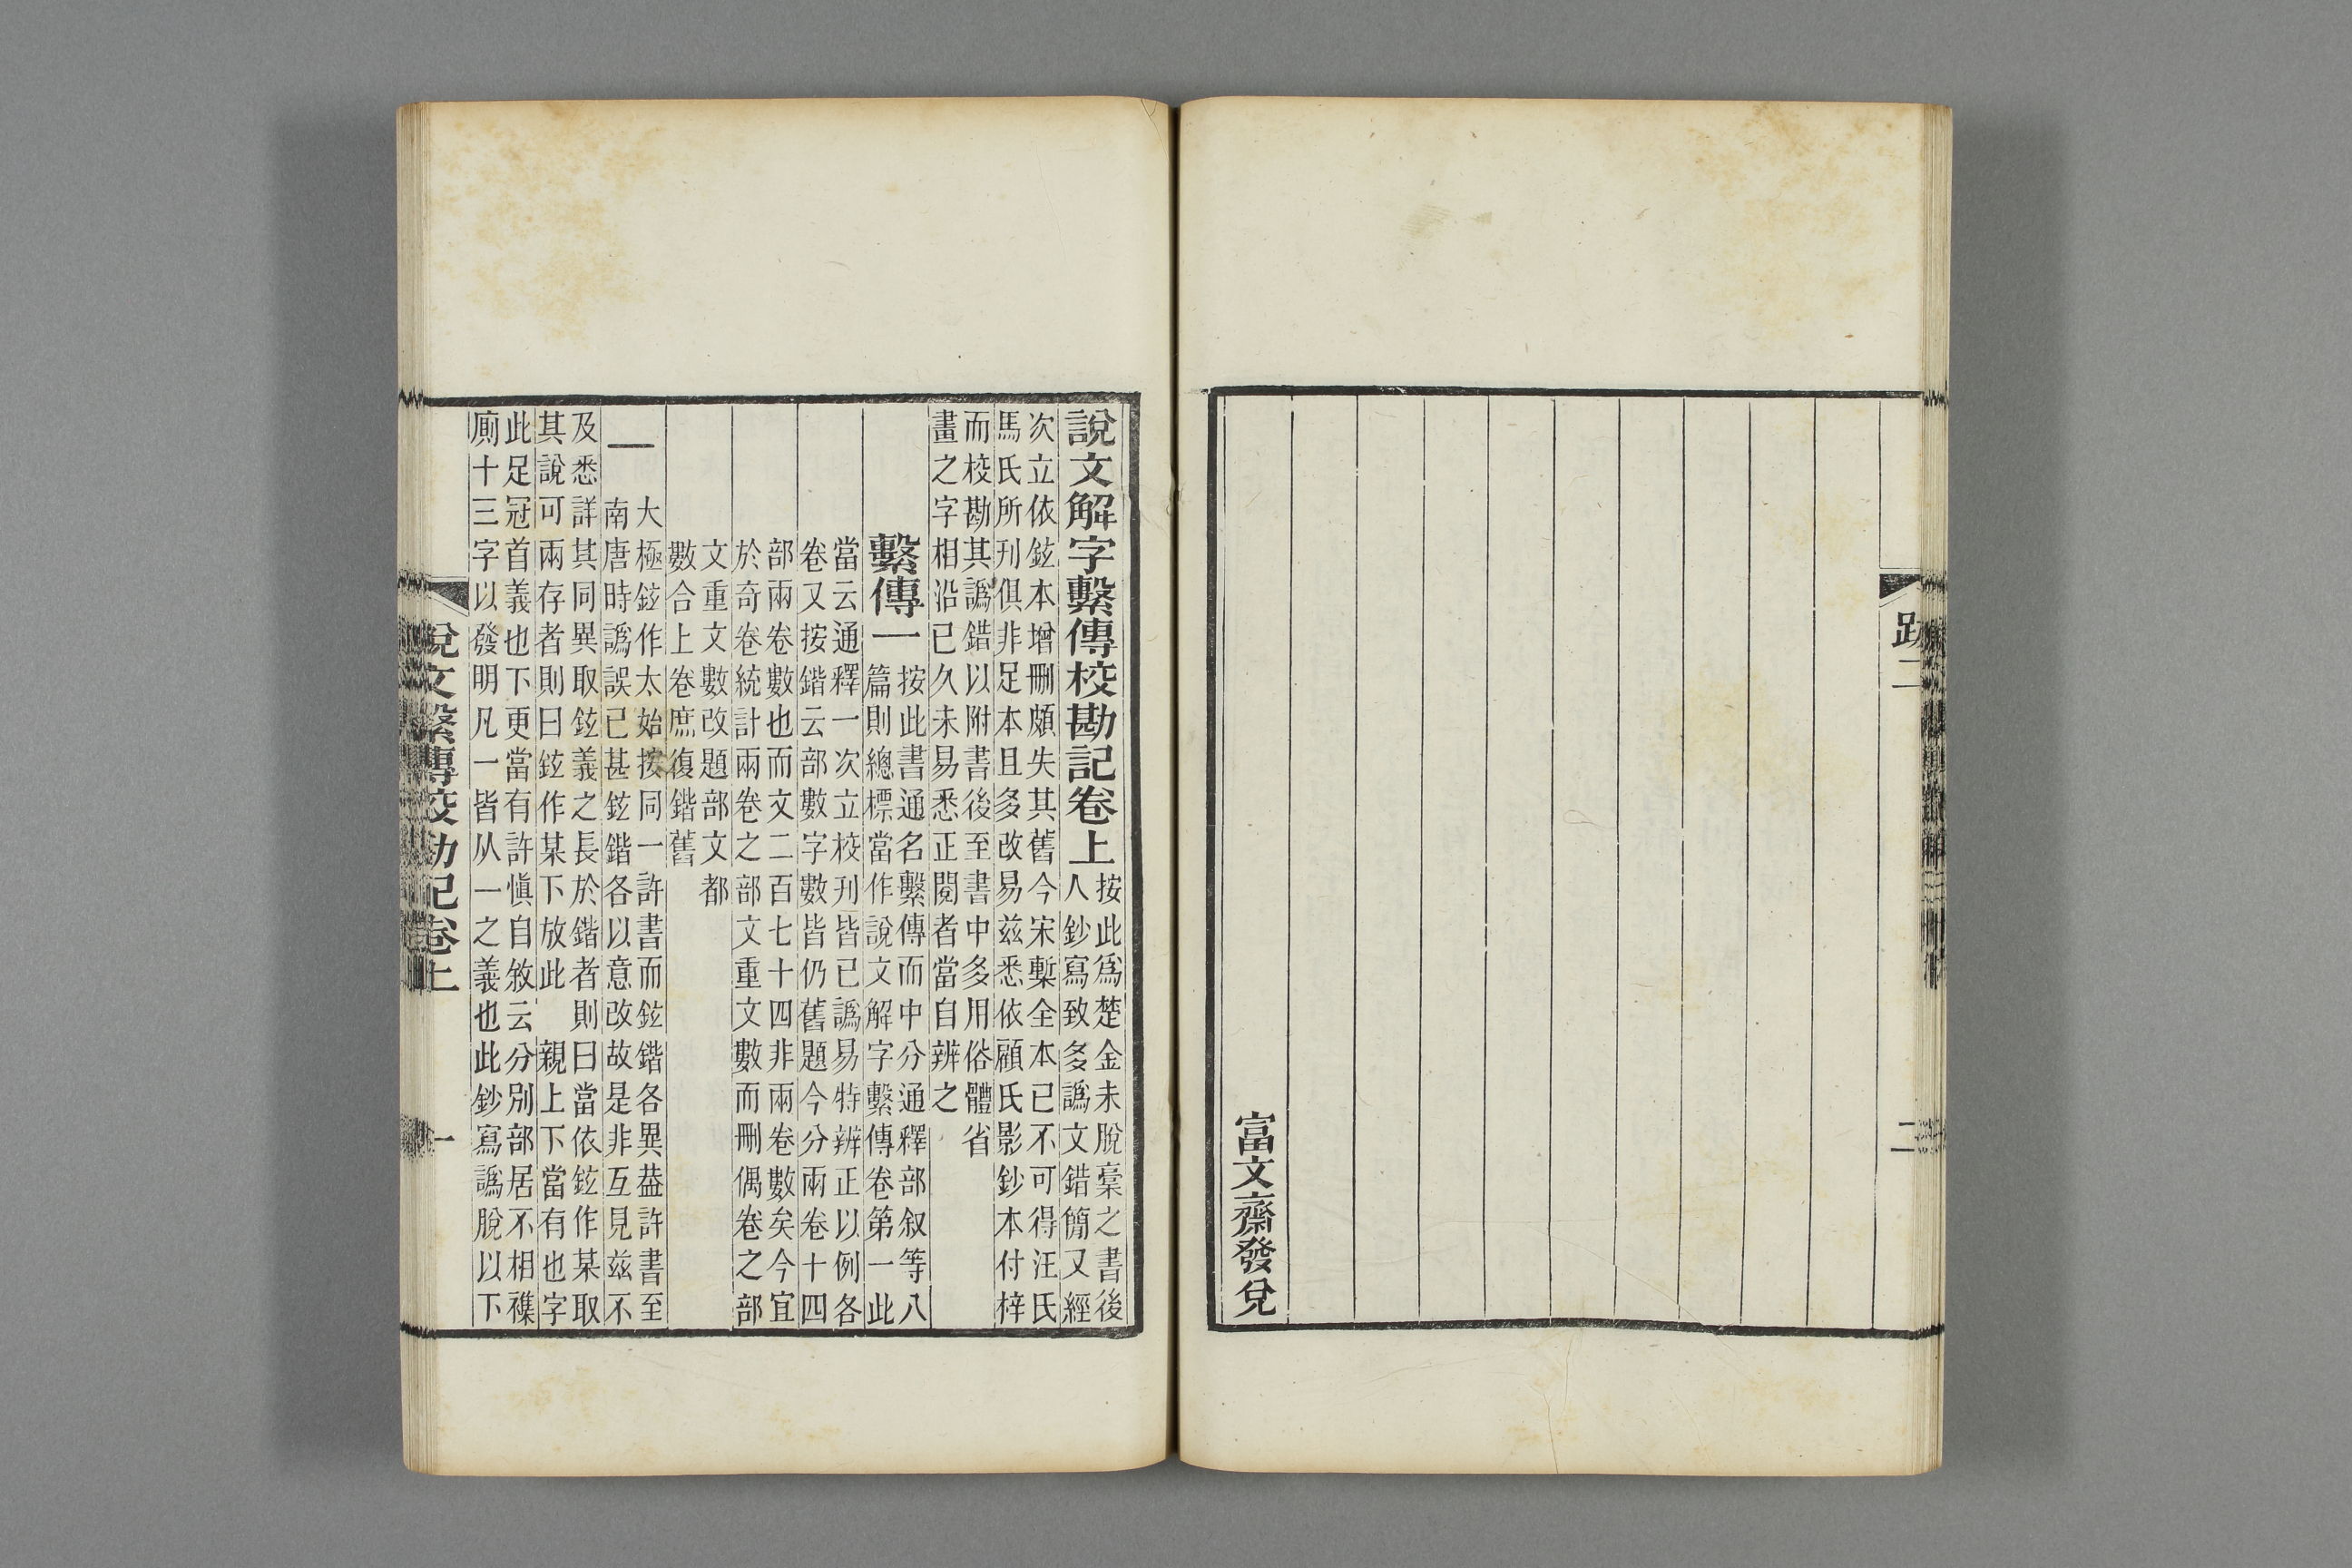 跋二
二
富文齋發兌
說文解字繫傳校勘記卷上
按此爲楚金未脫稾之書後
人鈔寫致多譌文錯簡又經
次立依鉉本增刪頗失其舊今宋槧全本已不可得汪氏
馬氏所刊俱非足本且多改易兹悉依顧氏影鈔本付梓
而校勘其譌錯以附書後至書中多用俗體省
畫之字相沿已久未易悉正閱者當自辨之
繫傳一
按此書通名繫傳而中分通釋部叙等八
篇則總標當作說文解字繫傳卷第一此
當云通釋一次立校刊皆已譌易特辨正以例各
卷又按鍇云部數字數皆仍舊題今分兩卷十四
部兩卷數也而文二百七十四非兩卷數矣今宜
於奇卷統計兩卷之部文重文數而刪偶卷之部
文重文數改題部文都
數合上卷庶復鍇舊
一
大極鉉作太始按同一許書而鉉鍇各異葢許書至
南唐時譌誤已甚鉉鍇各以意改故是非互見兹不
及悉詳其同異取鉉義之長於鍇者則曰當依鉉作某取
其說可兩存者則曰鉉作某下放此 親上下當有也字
此足冠首義也下更當有許愼自敘云分別部居不相襍
廁十三字以發明凡一皆从一之義也此鈔寫譌脫以下
說文繫傳校勘記卷上
一